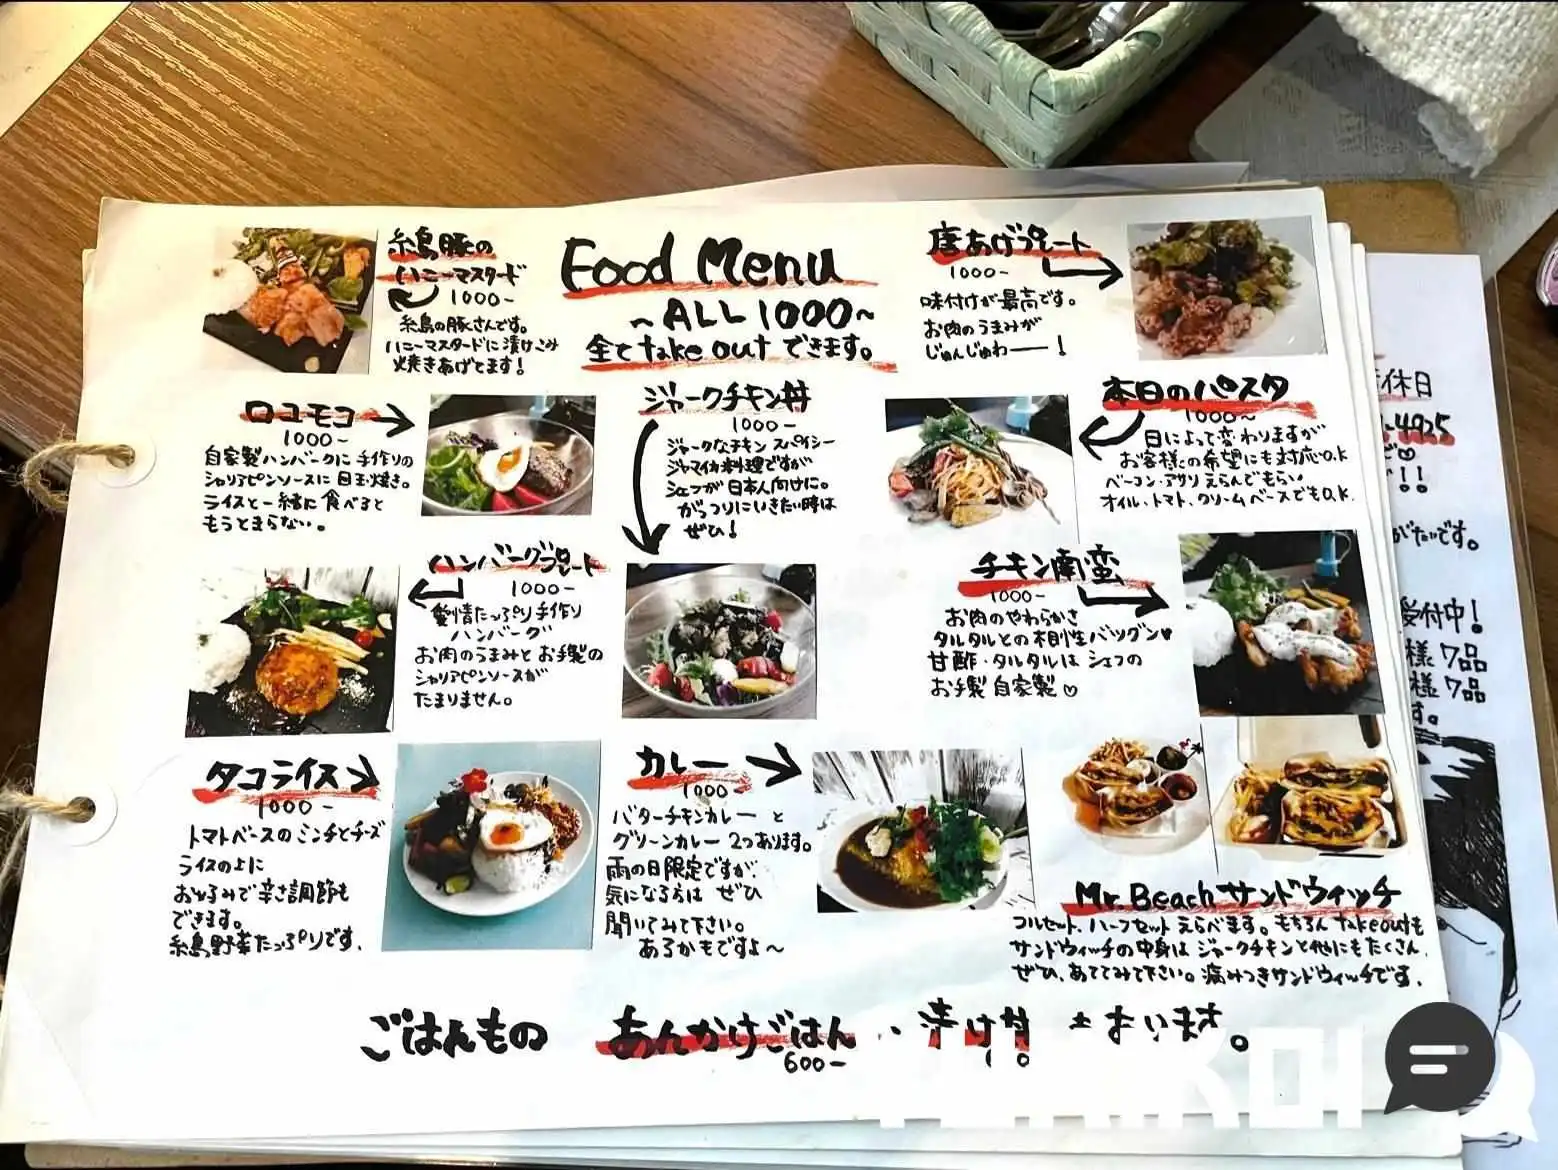 Food Menu
~ALL 1000~
全てtake outできます。
糸島豚の
ハニーマスタード
1000-
糸島の豚さんです。
ハニーマスタードに漬けこみ
焼きあげてます!
唐あげプレート
1000-
味付けが最高です。
お肉のうまみが
じゅんじゅわ——!
ロコモコ
1000-
自家製ハンバーグに手作りの
シャリアピンソースに目玉焼き。
ライスと一緒に食べると
もうとまらない。
ジャークチキン丼
1000-
ジャークなチキン スパイシー
ジャマイカ料理ですが
シェフが日本人向けに。
がっつりにいきたい時は
ぜひ!
本日のパスタ
1000~
日によって変わりますが
お客様の希望にも対応O.K
ベーコン・アサリえらんでもらい
オイル、トマト、クリームベースでもO.K.
ハンバーグプレート
1000-
愛情たっぷり手作り
ハンバーグ
お肉のうまみとお手製の
シャリアピンソースが
たまりません。
チキン南蛮
1000-
お肉のやわらかさ
タルタルとの相性バツグン♥
甘酢・タルタルはシェフの
お手製 自家製♡
タコライス
1000-
トマトベースのミンチとチーズ
ライスの上に
お好みで辛さ調節も
できます。
糸島野菜たっぷりです.
カレー
1000-
バターチキンカレーと
グリーンカレー2つあります。
雨の日限定ですが、
気になる方は ぜひ
聞いてみて下さい。
あるかもですよ~
Mr. Beach サンドウィッチ
フルセット、ハーフセットえらべます。もちろんtakeoutも
サンドウィッチの中身はジャークチキンと他にもたくさん.
ぜひ、あててみて下さい。病みつきサンドウィッチです.
ごはんもの あんかけごはん ・漬け丼
600-
休日
4925
!!
がたいです。
受付中!
様 7品
様 7品
す。